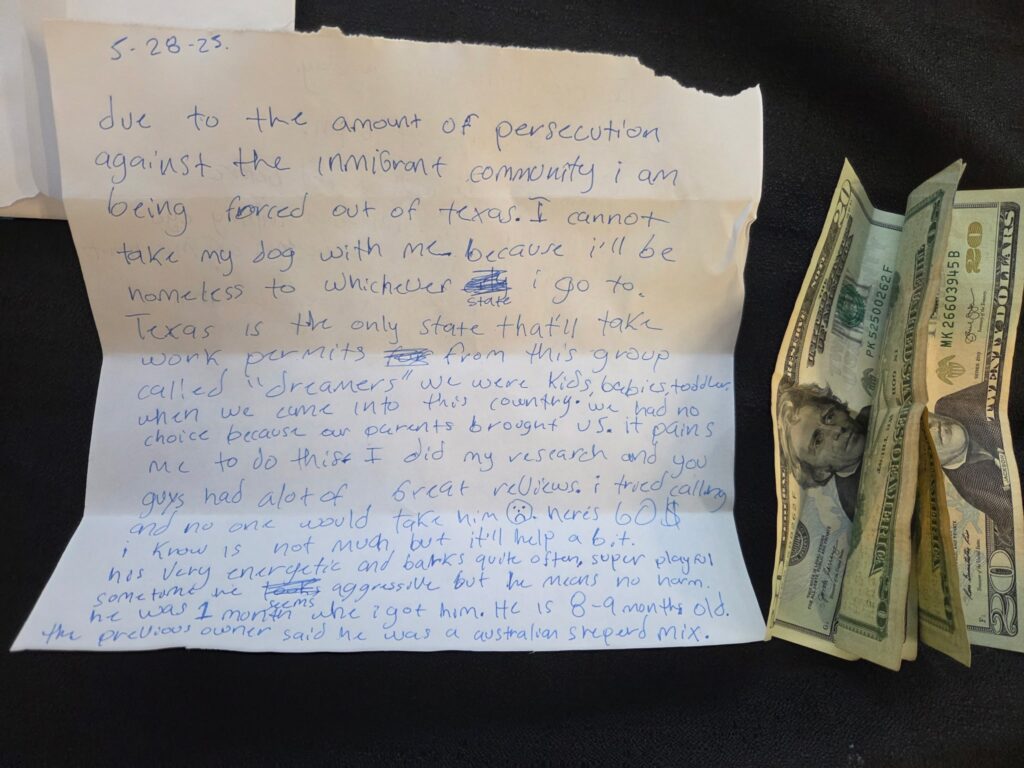 5-28-25.
due to the amount of persecution
against the inmigrant community i am
being forced out of texas. I cannot
take my dog with me because i'll be
homeless to whichever state i go to.
Texas is the only state that'll take
work permits from this group
called "dreamers" we were kids, babies, toddlers
when we came into this country. we had no
choice because our parents brought us. it pains
me to do this. I did my research and you
guys had alot of Great reviews. i tried calling
and no one would take him ☹. here's 60$
i know is not much but it'll help a bit.
his very energetic and barks quite often, super playful
sometime he seems aggressive but he means no harm.
he was 1 month whe i got him. He is 8-9 months old.
the previous owner said he was a australian sheperd mix.
20
PK52500262F
MK26603945B
20
TWENTY DOLLARS
20